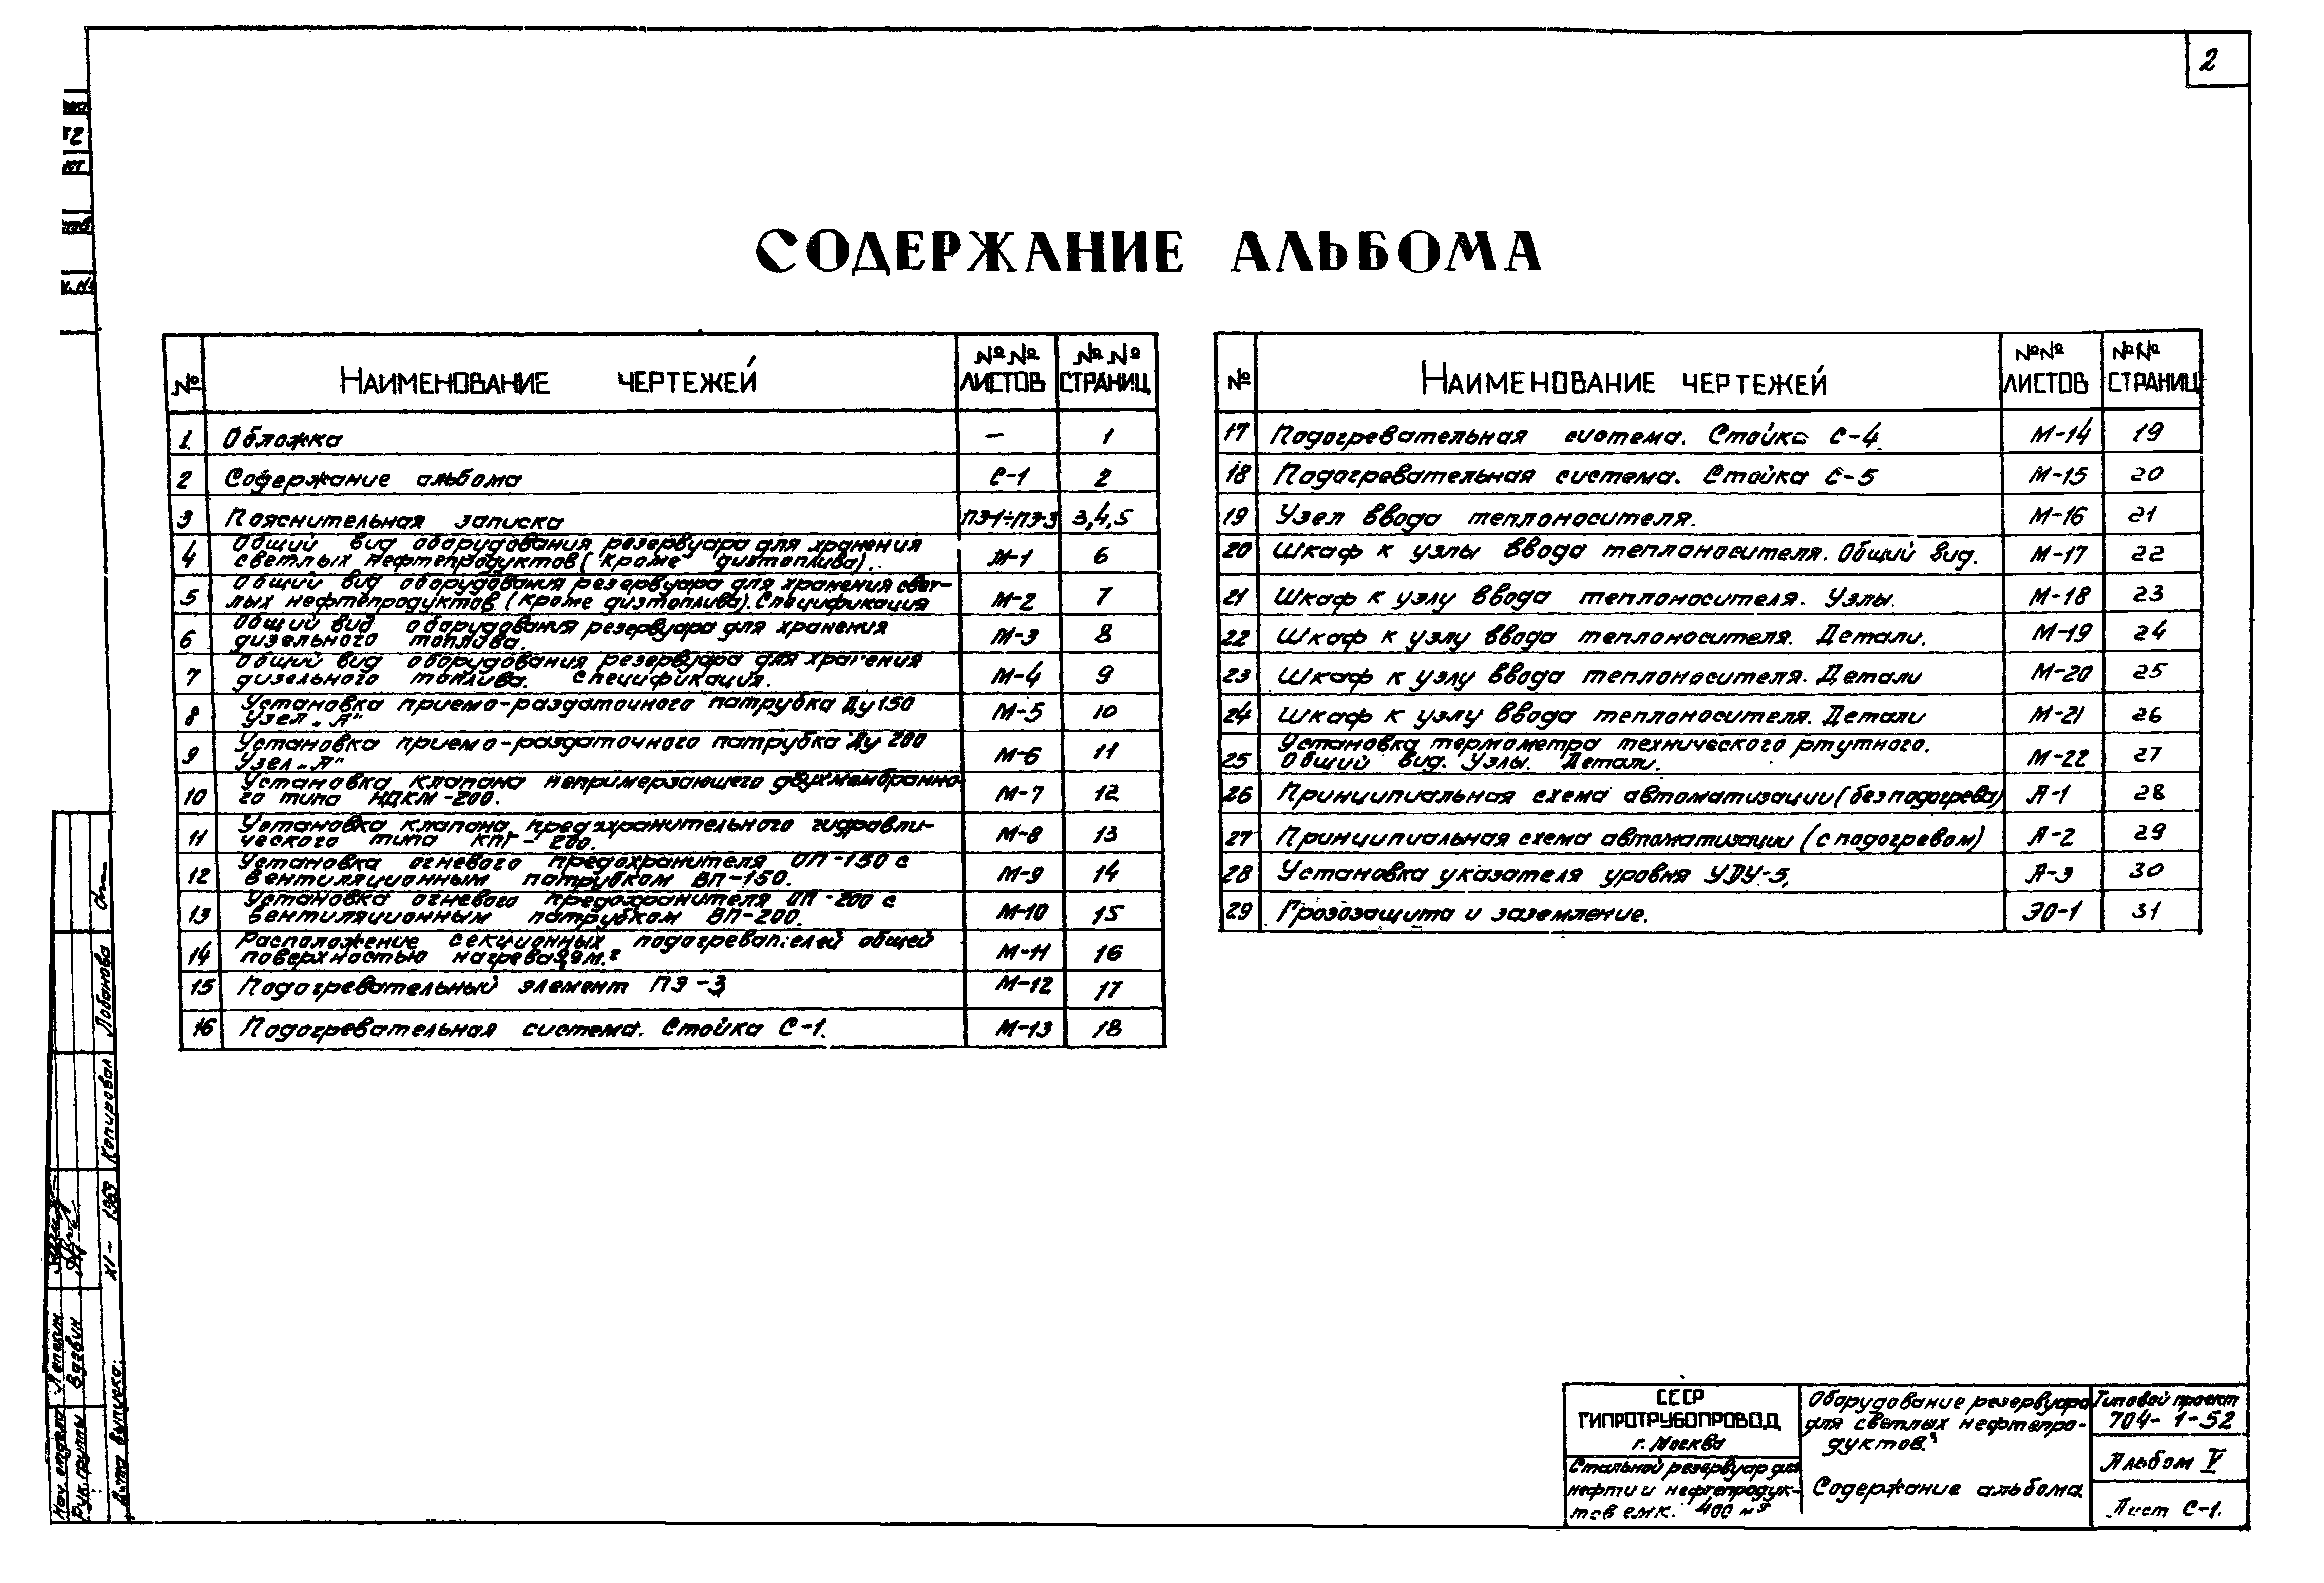 2
СОДЕРЖАНИЕ АЛЬБОМА
№ НАИМЕНОВАНИЕ ЧЕРТЕЖЕЙ №№ ЛИСТОВ №№ СТРАНИЦ
1. Обложка — 1
2 Содержание альбома С-1 2
3 Пояснительная записка ПЗ-1÷ПЗ-3 3,4,5
4 Общий вид оборудования резервуара для хранения
светлых нефтепродуктов (кроме дизтоплива). М-1 6
5 Общий вид оборудования резервуара для хранения свет-
лых нефтепродуктов (кроме дизтоплива). Спецификация М-2 7
6 Общий вид оборудования резервуара для хранения
дизельного топлива. М-3 8
7 Общий вид оборудования резервуара для хранения
дизельного топлива. Спецификация. М-4 9
8 Установка приемо-раздаточного патрубка Ду 150
Узел „А" М-5 10
9 Установка приемо-раздаточного патрубка Ду 200
Узел „А" М-6 11
10 Установка клапана непримерзающего двухмембранно-
го типа НДКМ-200. М-7 12
11 Установка клапана предохранительного гидравли-
ческого типа КПГ-200. М-8 13
12 Установка огневого предохранителя ОП-150 с
вентиляционным патрубком ВП-150. М-9 14
13 Установка огневого предохранителя ОП-200 с
вентиляционным патрубком ВП-200. М-10 15
14 Расположение секционных подогревателей общей
поверхностью нагрева м.² М-11 16
15 Подогревательный элемент ПЭ-3 М-12 17
16 Подогревательная система. Стойка С-1. М-13 18
№ НАИМЕНОВАНИЕ ЧЕРТЕЖЕЙ №№ ЛИСТОВ №№ СТРАНИЦ
17 Подогревательная система. Стойка С-4. М-14 19
18 Подогревательная система. Стойка С-5 М-15 20
19 Узел ввода теплоносителя. М-16 21
20 Шкаф к узлы ввода теплоносителя. Общий вид. М-17 22
21 Шкаф к узлу ввода теплоносителя. Узлы. М-18 23
22 Шкаф к узлу ввода теплоносителя. Детали. М-19 24
23 Шкаф к узлу ввода теплоносителя. Детали М-20 25
24 Шкаф к узлу ввода теплоносителя. Детали М-21 26
25 Установка термометра технического ртутного.
Общий вид. Узлы. Детали. М-22 27
26 Принципиальная схема автоматизации (без подогрева) А-1 28
27 Принципиальная схема автоматизации (с подогревом) А-2 29
28 Установка указателя уровня УДУ-5, А-3 30
29 Грозозащита и заземление. ЭО-1 31
СССР
ГИПРОТРУБОПРОВОД
г. Москва
Стальной резервуар для
нефти и нефтепродук-
тов емк. 400 м³
Оборудование резервуара
для светлых нефтепро-
дуктов.
Содержание альбома.
Типовой проект
704-1-52
Альбом V
Лист С-1.
Нач. отдела Лепехин
Рук. группы Вдзвин
Дата выпуска: XI - 1969 Копировал Лобанова